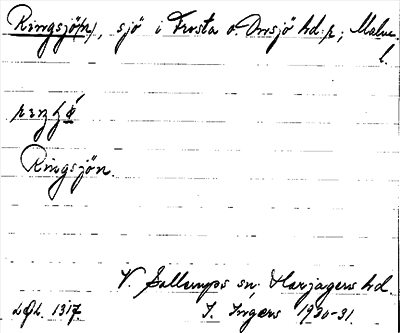 Ringsjö(n), sjö i Frosta o. Onsjö hd:r; Malm.
l.
Ringsjön.
V. Sallerups sn. Harjagers hd.
1317. I. Ingers 1930-31.